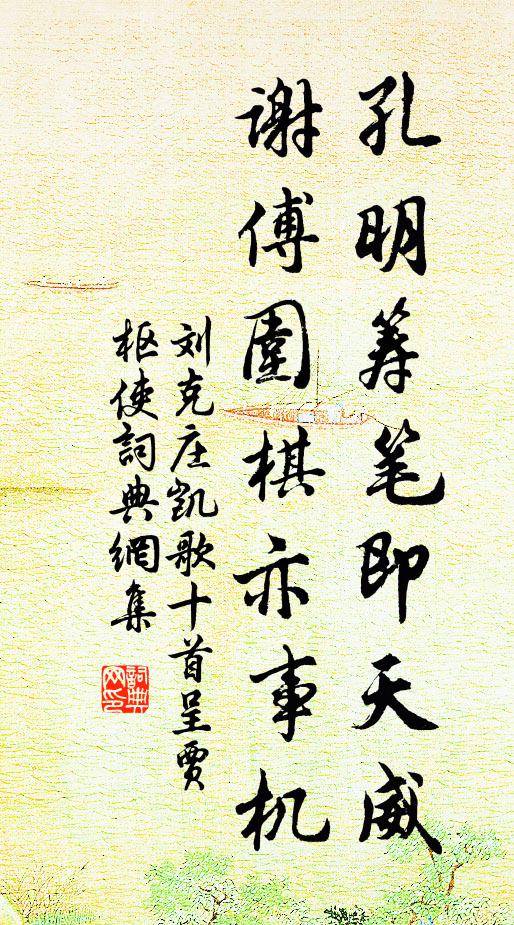 孔明筹笔即天威
谢傅围棋亦事机
刘克庄凯歌十首呈贾
枢使詞典網集
詞典
网印